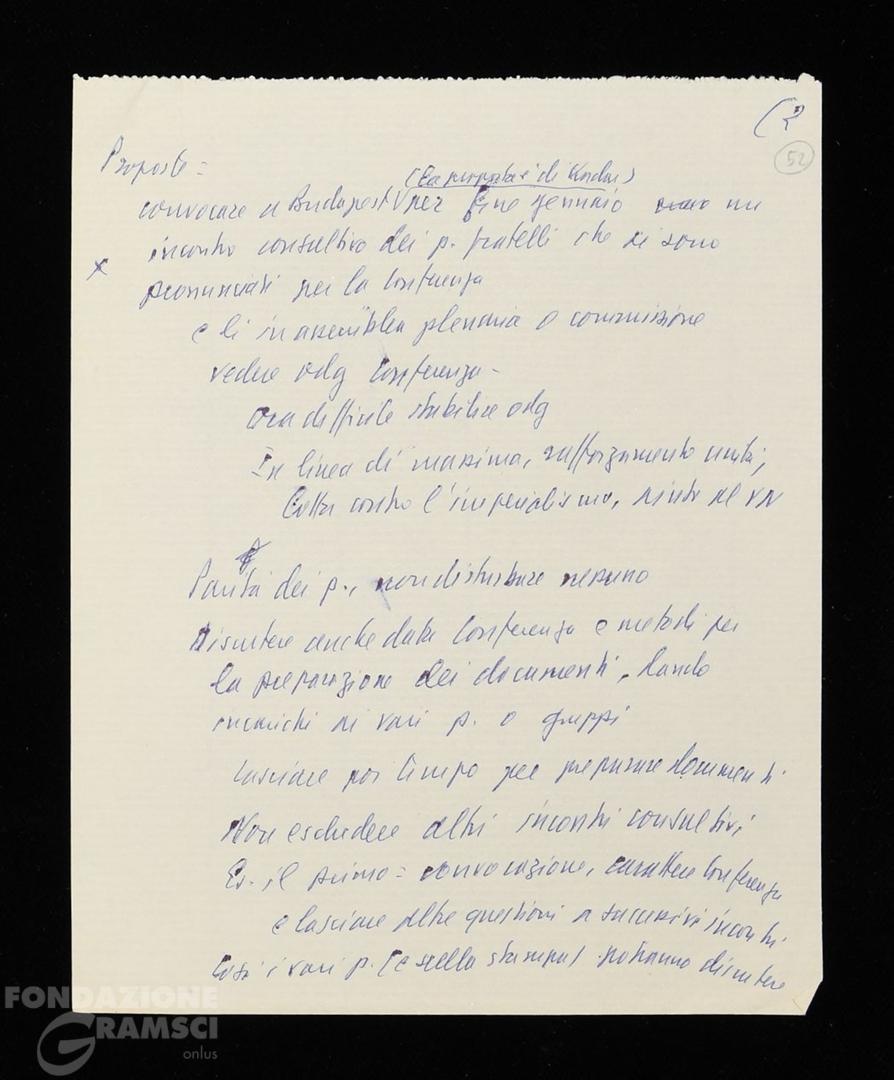 (2
52
Proposte =
(La proposta è di Kadar)
convocare a Budapest per fine gennaio un
incontro consultivo dei p. fratelli che si sono
x
pronunciati per la Conferenza
e lì in assemblea plenaria o commissione
vedere odg Conferenza -
Ora difficile stabilire odg
In linea di massima, rafforzamento unità,
lotta contro l'imperialismo, aiuto al VN
Parità dei p., non disturbare nessuno
Discutere anche data Conferenza e metodi per
la preparazione dei documenti, dando
incarichi ai vari p. o gruppi
Lasciare poi tempo per preparare documenti
Non escludere altri incontri consultivi
Es. il primo = convocazione, carattere Conferenza
e lasciare altre questioni a successivi incontri.
Così i vari p. (e sulla stampa) potranno discutere
FONDAZIONE
GRAMSCI
onlus